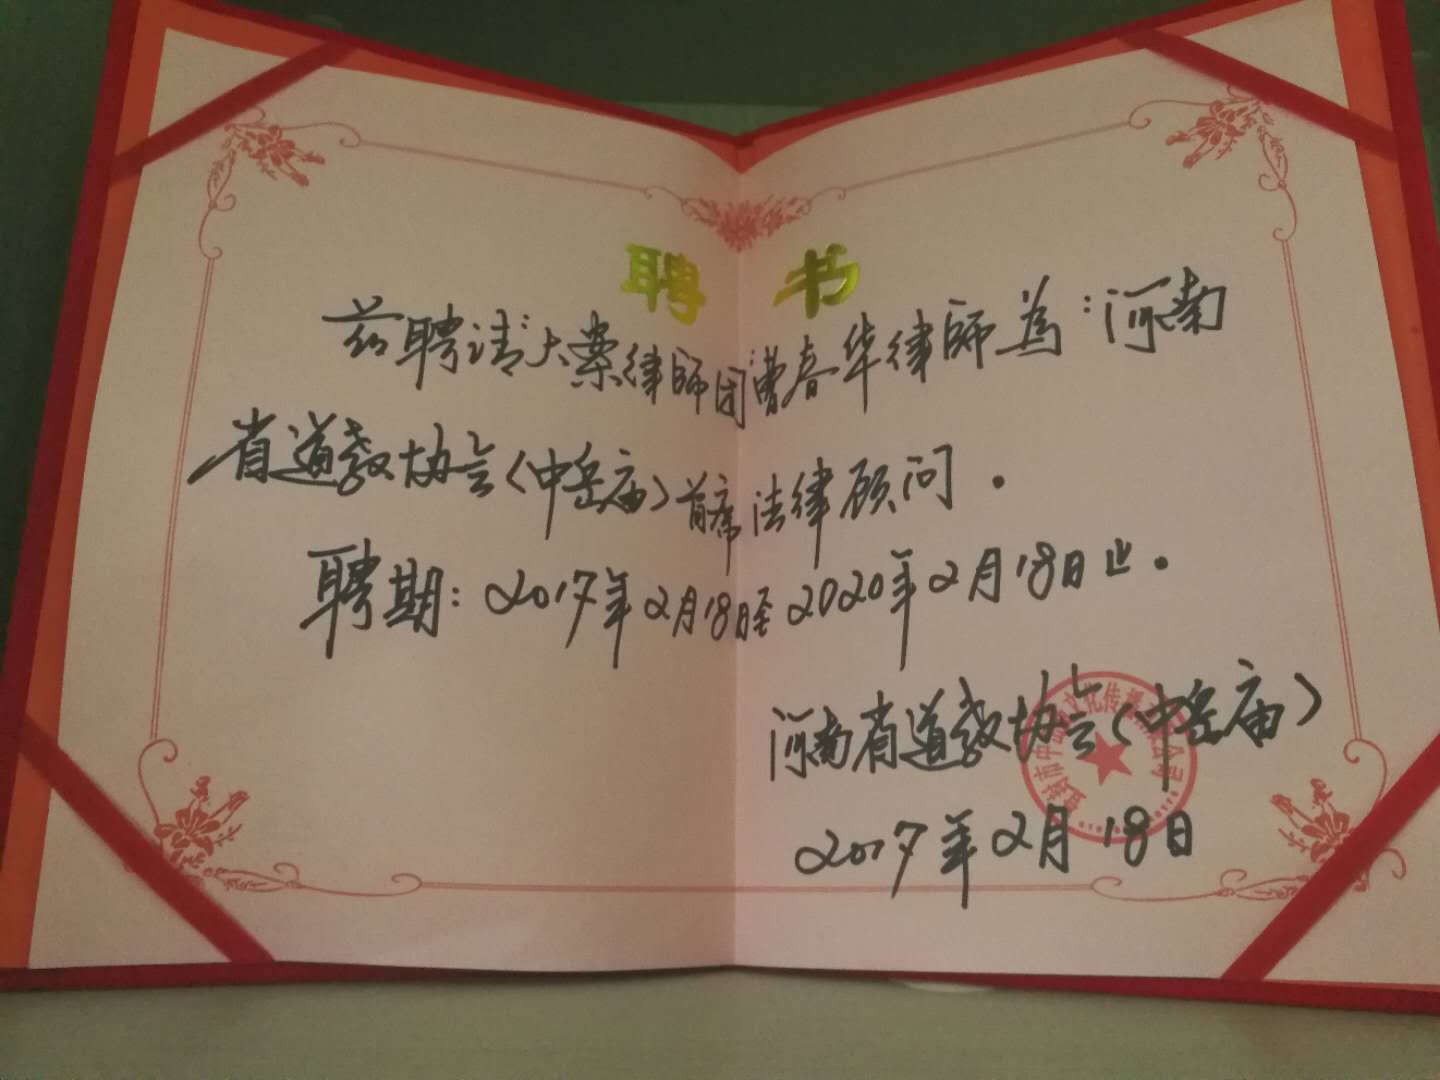 聘书
兹聘请大案律师团曹春华律师为:河南
省道教协会(中岳庙)首席法律顾问.
聘期:2017年2月18日至2020年2月18日止.
河南省道教协会(中岳庙)
2017年2月18日
登封市中岳文化传播有限公司